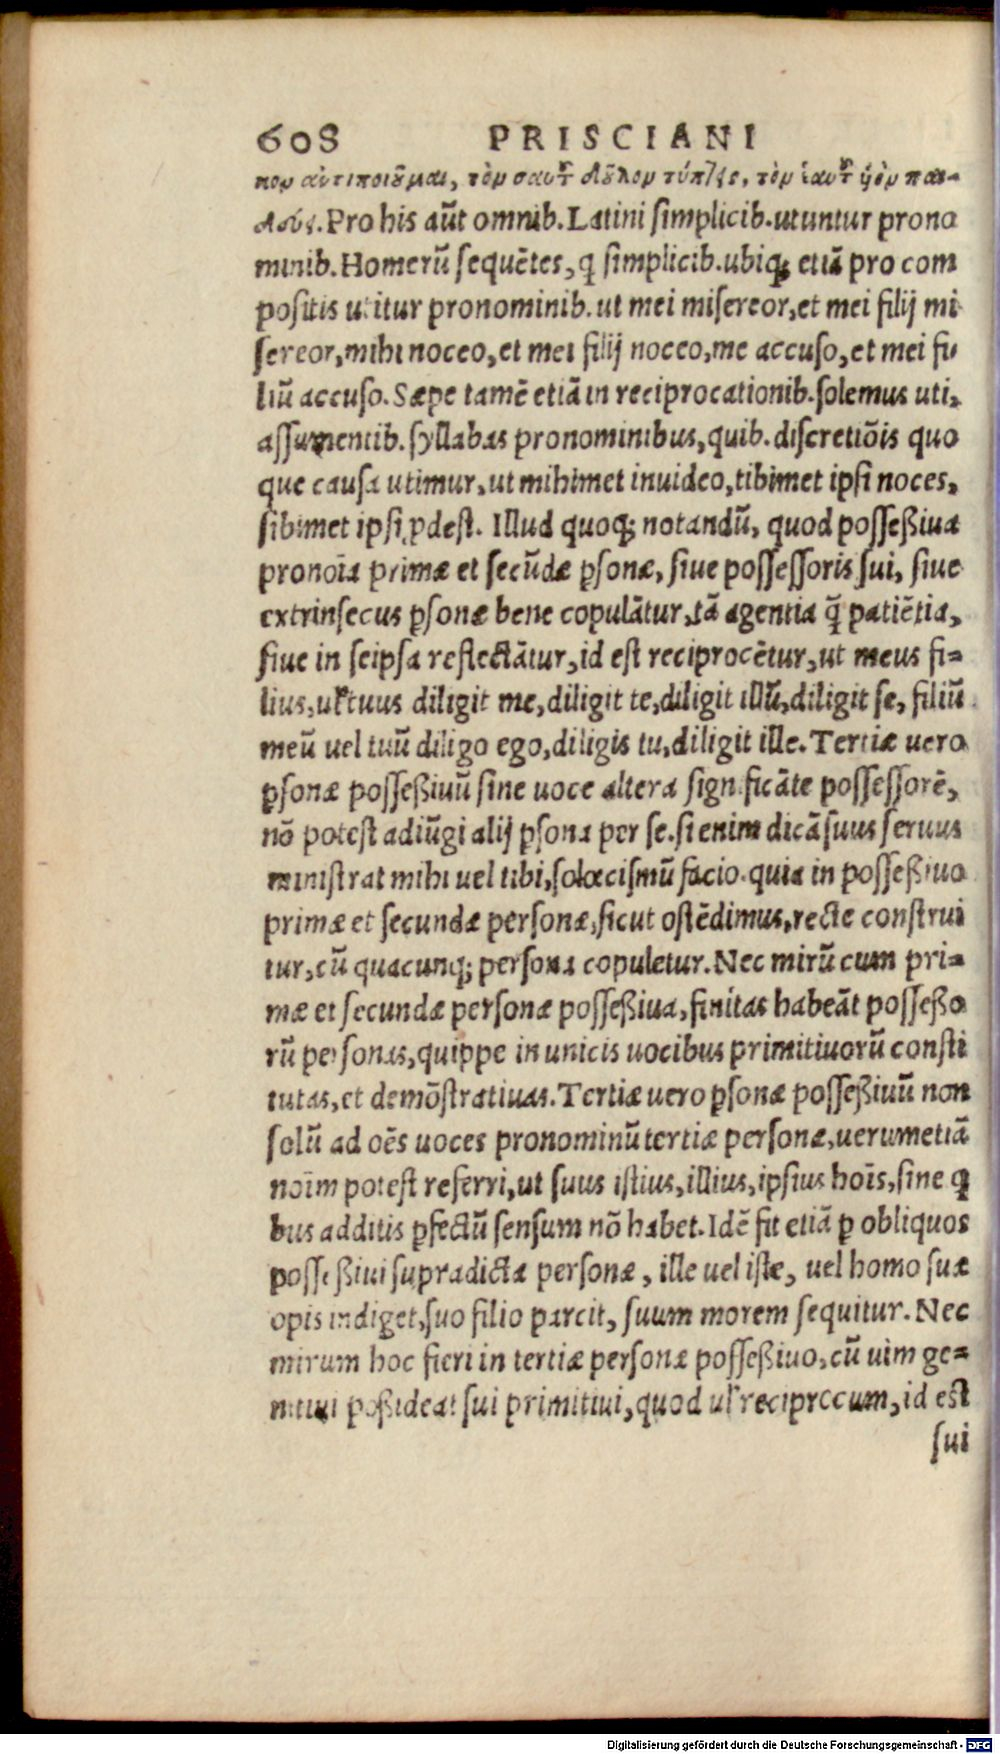 608 PRISCIANI
κον ἀντιποιοῦμαι, τὸν σαυτ δοῦλον τύπτεις, τὸν ἑαυτ υἱὸν παι-
δεύει. Pro his aūt omnib. Latini simplicib. utuntur prono
minib. Homerū sequētes, q simplicib. ubiq; etiā pro com
positis utitur pronominib. ut mei misereor, et mei filij mi
sereor, mihi noceo, et mei filij noceo, me accuso, et mei fi
liū accuso. Sæpe tamē etiā in reciprocationib. solemus uti,
assumentib. syllabas pronominibus, quib. discretiōis quo
que causa utimur, ut mihimet inuideo, tibimet ipsi noces,
sibimet ipsi ꝓdest. Illud quoq; notandū, quod posseßiua
pronoīa primæ et secūdæ ꝑsonæ, siue possessoris sui, siue
extrinsecus ꝑsonæ bene copulātur, tā agentia q̄ patiētia,
siue in seipsa reflectātur, id est reciprocētur, ut meus fi=
lius, ul' tuus diligit me, diligit te, diligit illū, diligit se, filiū
meū uel tuū diligo ego, diligis tu, diligit ille. Tertiæ uero
ꝑsonæ posseßiuū sine uoce altera significāte possessorē,
nō potest adiūgi alij ꝑsona per se. si enim dicā suus seruus
ministrat mihi uel tibi, solœcismū facio. quia in possessiuo
primæ et secundæ personæ, sicut ostēdimus, recte construi
tur, cū quacunq; persona copuletur. Nec mirū cum pri=
mæ et secundæ personæ possessiua, finitas habeāt possesso
rū personas, quippe in unicis uocibus primitiuorū consti
tutas, et demōstratiuas. Tertiæ uero ꝑsonæ possessiuū non
solū ad oēs uoces pronominū tertiæ personæ, uerumetiā
noīm potest referri, ut suus istius, illius, ipsius hoīs, sine q
bus additis ꝑfectū sensum nō habet. Idē fit etiā ꝑ obliquos
posseßiui supradictæ personæ, ille uel iste, uel homo suæ
opis indiget, suo filio parcit, suum morem sequitur. Nec
mirum hoc fieri in tertiæ personæ posseßiuo, cū uim ge=
nitiui poßideat sui primitiui, quod ul' reciprocum, id est
sui
Digitalisierung gefördert durch die Deutsche Forschungsgemeinschaft - DFG